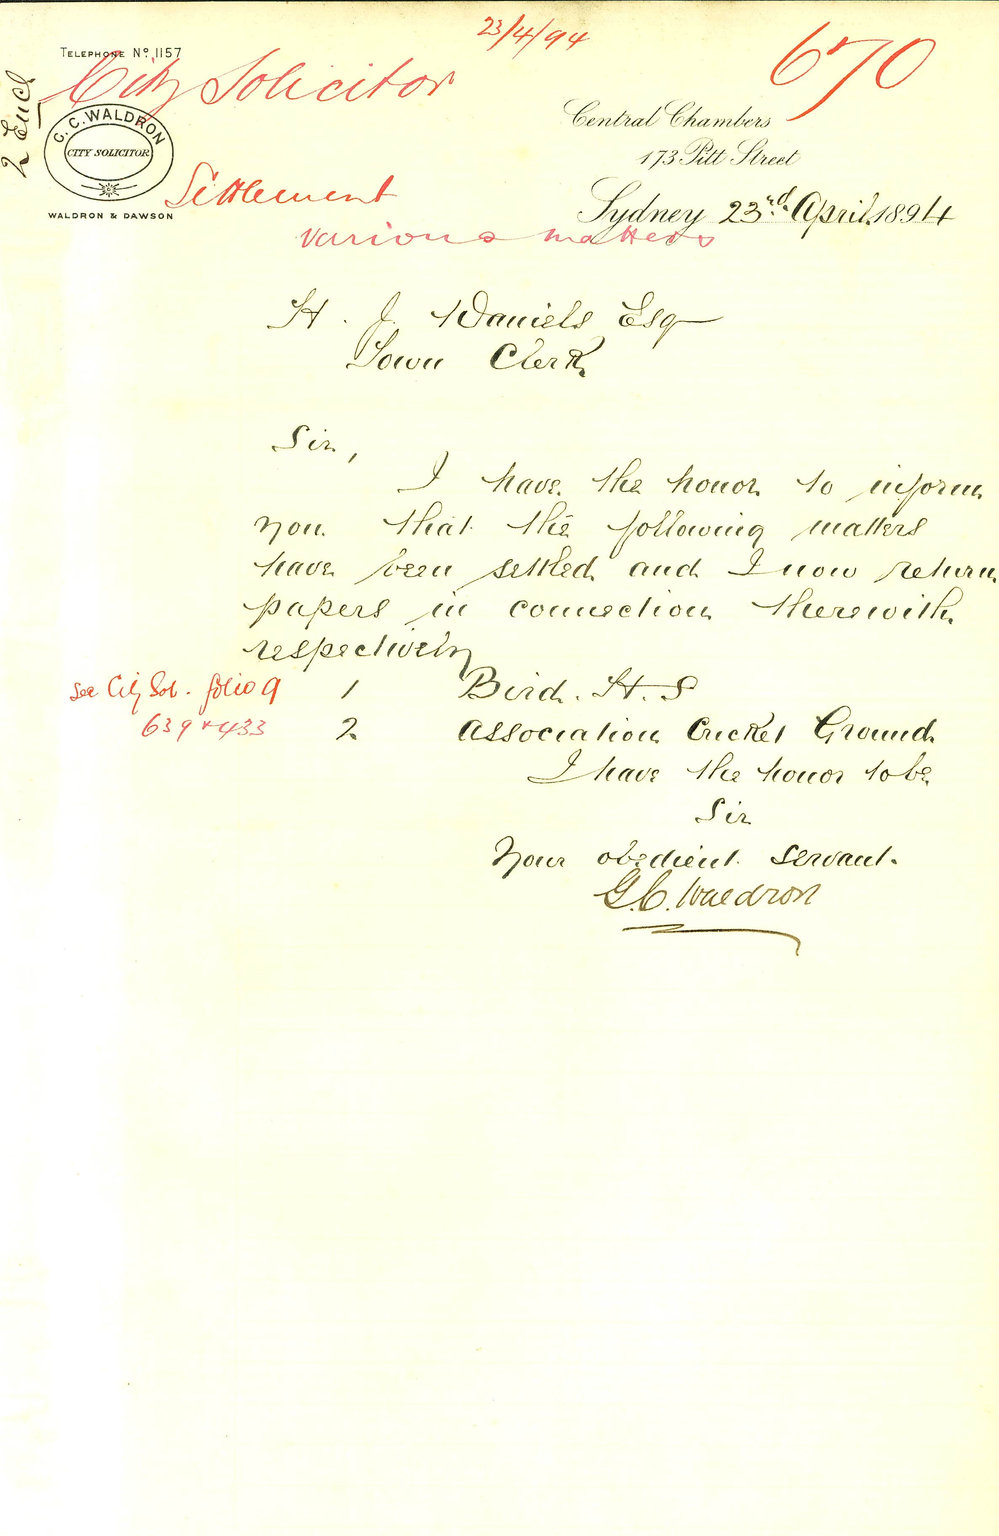 23/4/94
670
TELEPHONE No. 1157
City Solicitor
2 Encl
G. C. WALDRON
CITY SOLICITOR
WALDRON & DAWSON
Central Chambers
173 Pitt Street
Sydney 23rd April 1894
Settlement
various matters
H. J. Daniels Esq
Town Clerk
Sir,
I have the honor to inform
you that the following matters
have been settled and I now return
papers in connection therewith
respectively
see City Sol. folio 9 1 Bird. H. S
639 & 433 2 Association Cricket Ground
I have the honor to be
Sir
Your obedient servant.
G. C. Waldron